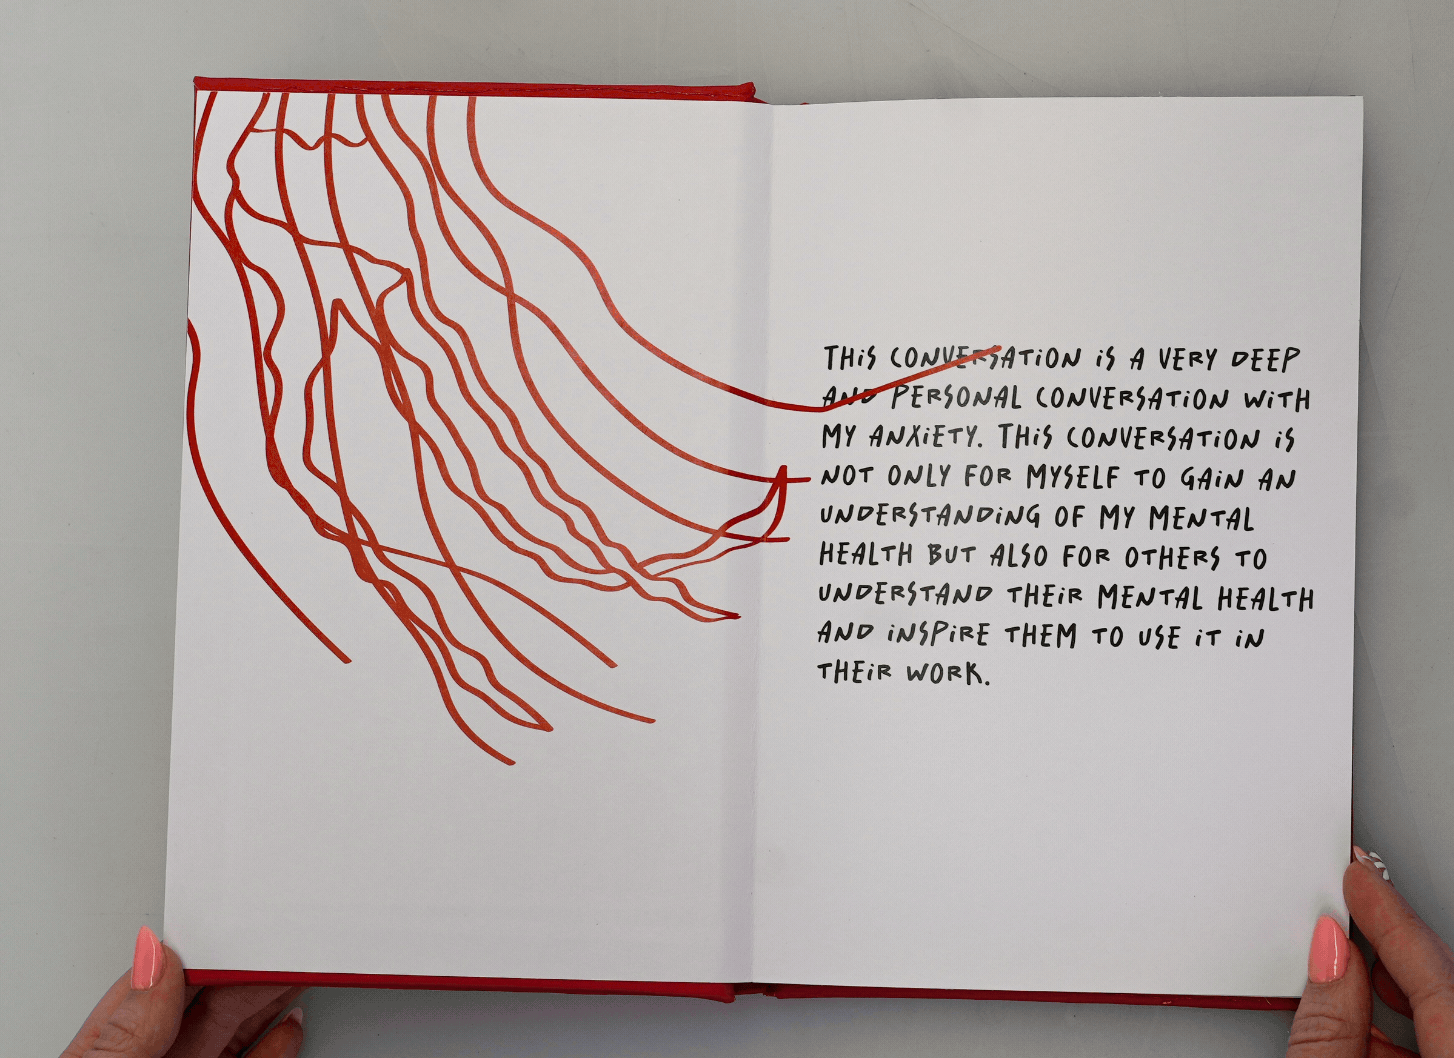 THiS CONVERSATiON iS A VERY DEEP
AND PERSONAL CONVERSATiON WiTH
MY ANXiETY. THiS CONVERSATiON iS
NOT ONLY FOR MYSELF TO GAiN AN
UNDERSTANDiNG OF MY MENTAL
HEALTH BUT ALSO FOR OTHERS TO
UNDERSTAND THEiR MENTAL HEALTH
AND iNSPiRE THEM TO USE iT iN
THEiR WORK.